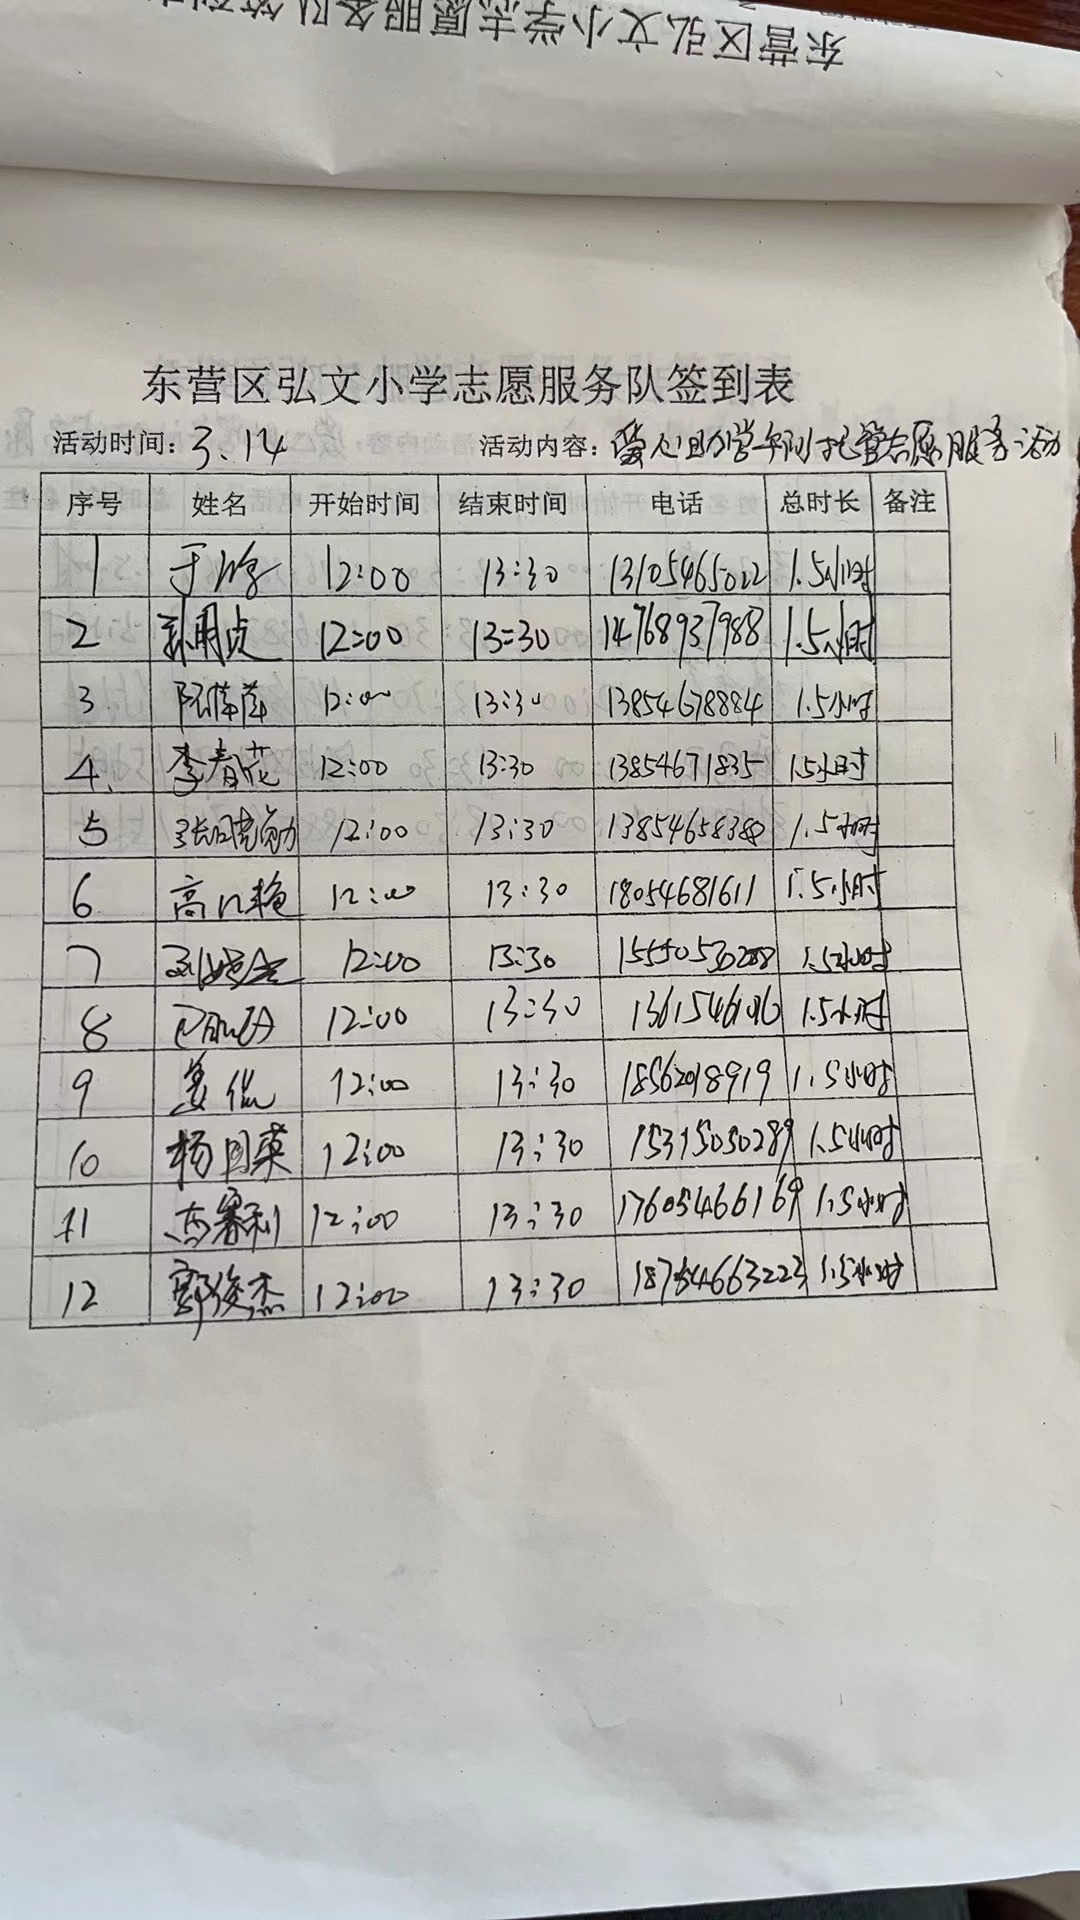 东营区弘文小学志愿服务队签到
东营区弘文小学志愿服务队签到表
活动时间：3.14 活动内容：爱心助学午间托管志愿服务活动
序号 姓名 开始时间 结束时间 电话 总时长 备注
1 12:00 13:30 13105465022 1.5小时
2 孙明贞 12:00 13:30 14768937988 1.5小时
3 陈萍萍 12:00 13:30 13854678884 1.5小时
4. 李春花 12:00 13:30 13854671835 1.5小时
5 张晓勋 12:00 13:30 13854658380 1.5小时
6 高 艳 12:00 13:30 18054681611 1.5小时
7 12:00 13:30 15550530288 1.5小时
8 12:00 13:30 1.5小时
9 姜 12:00 13:30 18562018919 1.5小时
10 杨国英 12:00 13:30 15315050289 1.5小时
11 李赛利 12:00 13:30 17605466169 1.5小时
12 郭俊杰 12:00 13:30 18754663223 1.5小时